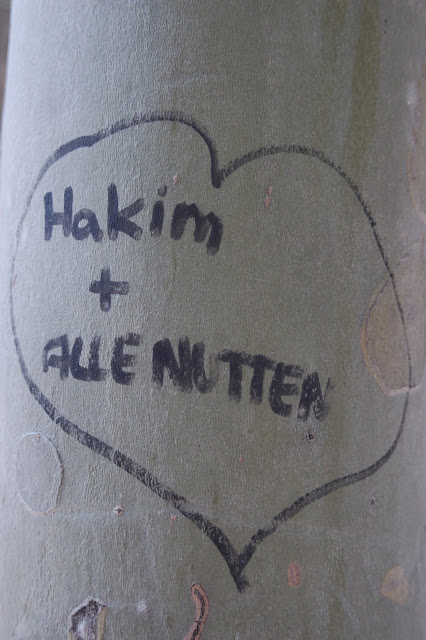 Hakim
+
ALLE NUTTEN